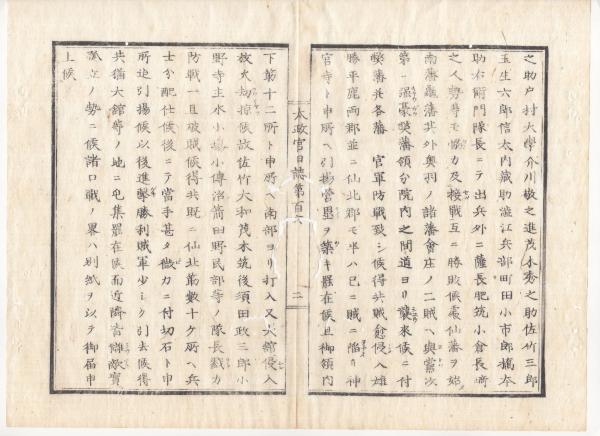 之助戸村大學介川敬之進茂木秀之助佐竹三郎
玉生六郎信太内藏助瀧江兵部町田小市郎橋本
助右衛門隊長ニテ出兵外ニ薩長肥筑小倉長崎
之人勢等モ協力及接戰互ニ勝敗候處仙藩ヲ始
南藩龜藩共外奥羽ノ諸藩會庄ノ二賊ヘ與黨次
第ニ強豪弊藩領分院内之間道ヨリ襲來候ニ付
弊藩并各藩　官軍防戰致シ候得共賊愈侵入雄
勝平鹿兩郡並ニ仙北郡モ半ハ已ニ賊ニ陷リ神
宮寺ト申所ヘ引揚營壘ヲ築キ罷在候且御領内
太政官日誌第百六
二
下第十二所ト申所ヘ南部ヨリ打入又大館侵入
放火劫掠候故佐竹大和茂木筑後須田政三郎小
野寺主水小瀬小傳治前田野民部等ノ隊長戮力
防戰一旦破賊候得共既ニ仙北筋數十ケ所ヘ兵
士分配仕候後ニテ當手甚タ微力ニ付切石ト申
所迄引揚候以後進撃勝利賊軍少シク引去候得
共猶大館等ノ地ニ屯集罷在候而近隣皆讎敵實
孤立ノ勢ニ候諸口戰ノ畧ハ別紙ヲ以テ御届申
上候